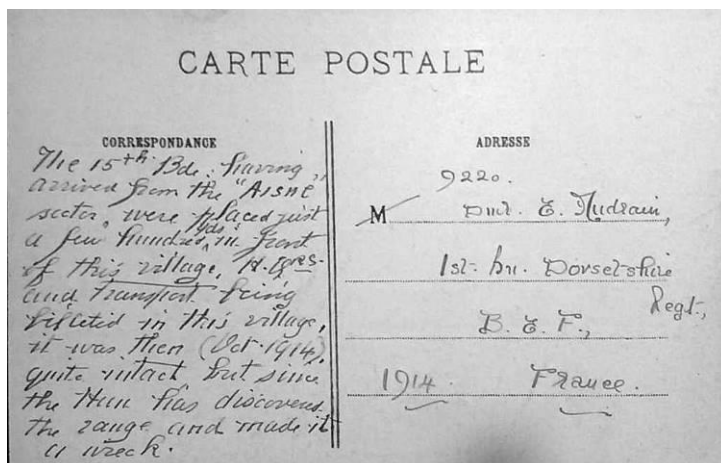 CARTE POSTALE
CORRESPONDANCE
The 15th Bde. having
arrived from the "Aisne"
sector, were placed just
a few hundred yds in front
of this village, H. Qrs.
and Transport being
billeted in this village,
it was then (Oct. 1914),
quite intact but since
the Hun has discovered
the range and made it
a wreck.
ADRESSE
9220.
M Dmr. E. Mudrain,
1st. bn. Dorsetshire
Regt.,
B. E. F.,
1914. France.